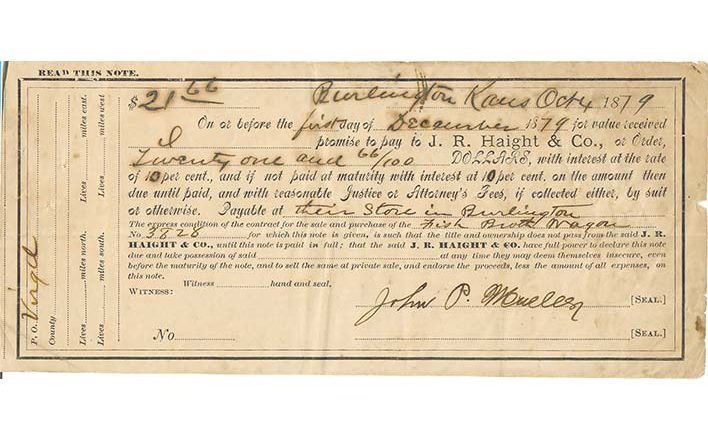 READ THIS NOTE.
$ 21 66 Burlington Kans Oct 4 1879
On or before the first day of December 1879 for value received
I promise to pay to J. R. Haight & Co., or Order,
Twenty one and 66/100 DOLLARS, with interest at the rate
of 10 per cent., and if not paid at maturity with interest at 10 per cent. on the amount then
due until paid, and with reasonable Justice or Attorney's Fees, if collected either, by suit
or otherwise. Payable at their Store in Burlington
The express condition of the contract for the sale and purchase of the Fish Broth Wagon
No 3828 for which this note is given, is such that the title and ownership does not pass from the said J. R.
HAIGHT & CO., until this note is paid in full; that the said J. R. HAIGHT & CO. have full power to declare this note
due and take possession of said at any time they may deem themselves insecure, even
before the maturity of the note, and to sell the same at private sale, and endorse the proceeds, less the amount of all expenses, on
this note.
Witness hand and seal.
WITNESS:
John P. Mueller [SEAL.]
No [SEAL.]
P. O. Virgil
County
Lives miles north. Lives miles east.
Lives miles south. Lives miles west